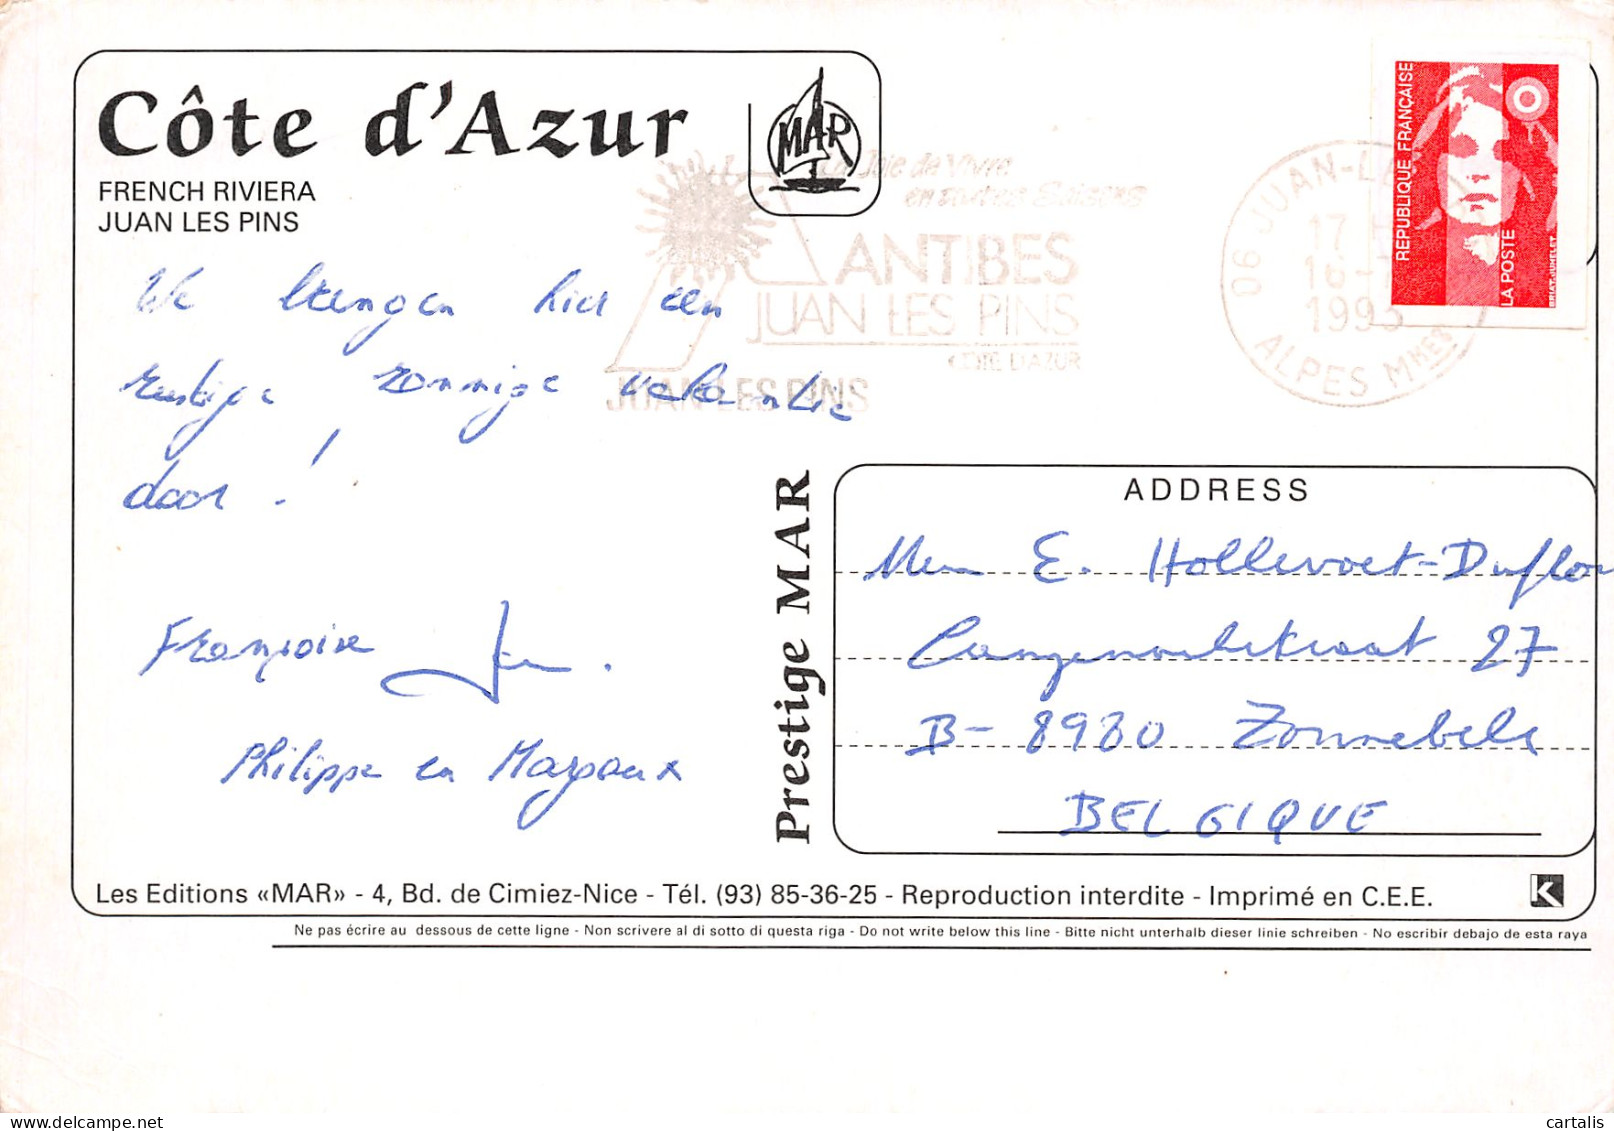 Côte d'Azur
FRENCH RIVIERA
JUAN LES PINS
MAR
La Joie de Vivre
en toutes Saisons
ANTIBES
JUAN LES PINS
CÔTE D'AZUR
JUAN-LES-PINS
06 JUAN-LE
17 H
16-
1993
ALPES MMES
REPUBLIQUE FRANÇAISE
LA POSTE
BRIAT-JUMELET
We brengen hier een
rustige zonnige vakantie
door !
Françoise
Philippe en Margaux
Prestige MAR
ADDRESS
Mevr E. Hollevoet-Duflou
Langemarkstraat 27
B-8980 Zonnebeke
BELGIQUE
Les Editions «MAR» - 4, Bd. de Cimiez-Nice - Tél. (93) 85-36-25 - Reproduction interdite - Imprimé en C.E.E.
K
Ne pas écrire au dessous de cette ligne - Non scrivere al di sotto di questa riga - Do not write below this line - Bitte nicht unterhalb dieser linie schreiben - No escribir debajo de esta raya
cartalis